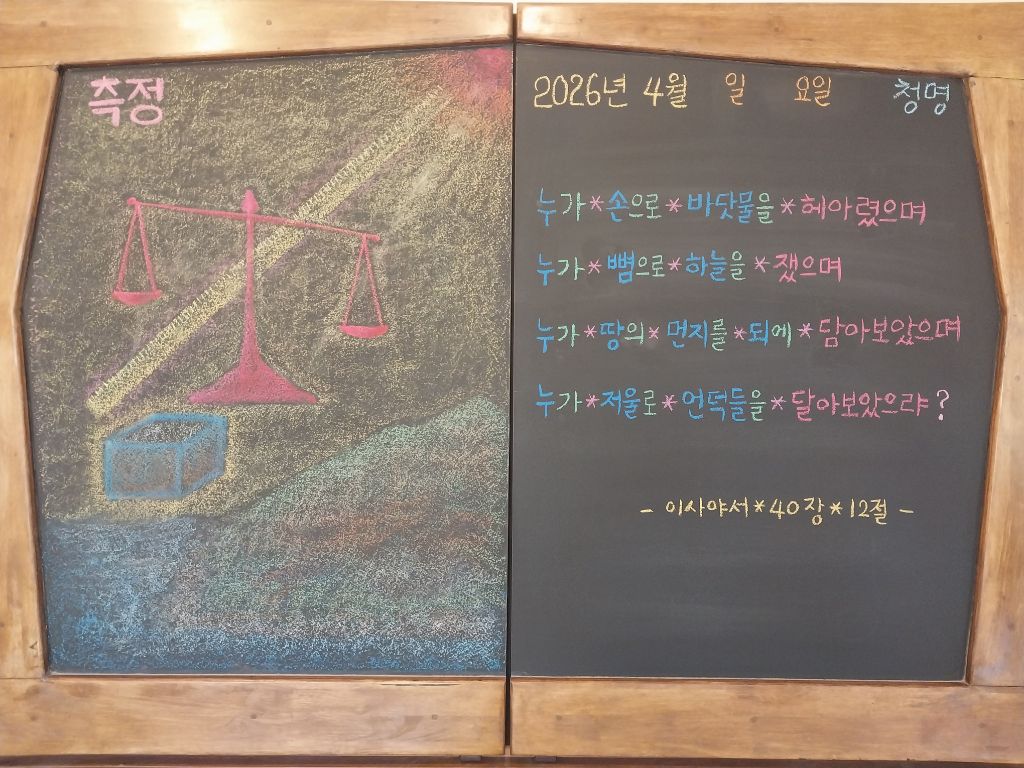 측정
2026년 4월 일 요일 청명
누가*손으로*바닷물을*헤아렸으며
누가*뼘으로*하늘을*쟀으며
누가*땅의*먼지를*되에*담아보았으며
누가*저울로*언덕들을*달아보았으랴?
- 이사야서*40장*12절 -